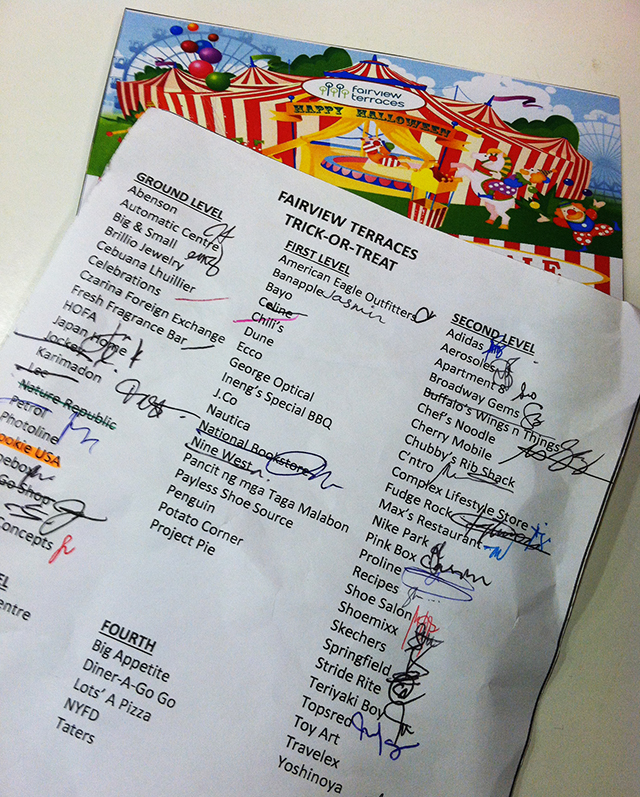 fairview
terraces
HAPPY HALLOWEEN
SALE
FAIRVIEW TERRACES
TRICK-OR-TREAT
GROUND LEVEL
Abenson
Automatic Centre
Big & Small
Brillio Jewelry
Cebuana Lhuillier
Celebrations
Czarina Foreign Exchange
Fresh Fragrance Bar
HOFA
Japan Home
Jockey
Karimadon
Lee
Nature Republic
Petrol
Photoline
ookie USA
Go Shop
Concepts
EL
entre
FIRST LEVEL
American Eagle Outfitters
Banapple Jasmin
Bayo
Celine
Chili's
Dune
Ecco
George Optical
Ineng's Special BBQ
J.Co
Nautica
National Bookstore
Nine West
Pancit ng mga Taga Malabon
Payless Shoe Source
Penguin
Potato Corner
Project Pie
FOURTH
Big Appetite
Diner-A-Go Go
Lots' A Pizza
NYFD
Taters
SECOND LEVEL
Adidas
Aerosoles
Apartment 8
Broadway Gems
Buffalo's Wings n Things
Chef's Noodle
Cherry Mobile
Chubby's Rib Shack
C'ntro
Complex Lifestyle Store
Fudge Rock
Max's Restaurant
Nike Park
Pink Box
Proline
Recipes
Shoe Salon
Shoemixx
Skechers
Springfield
Stride Rite
Teriyaki Boy
Topsred
Toy Art
Travelex
Yoshinoya